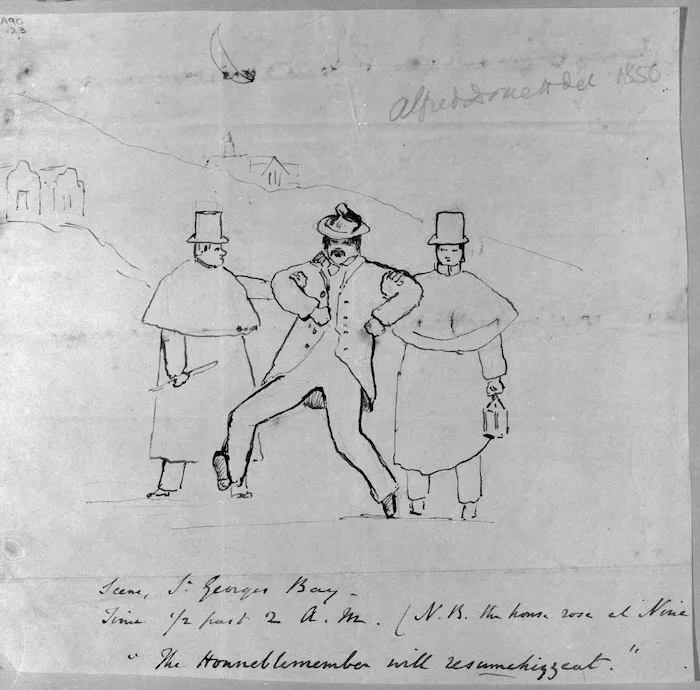 A90
123
Alfred Domett Del 1856
Scene, St Georges Bay –
Time ½ past 2 A.M. (N.B. the house rose at Nine
"The Honneblemember will resumehizzeat."